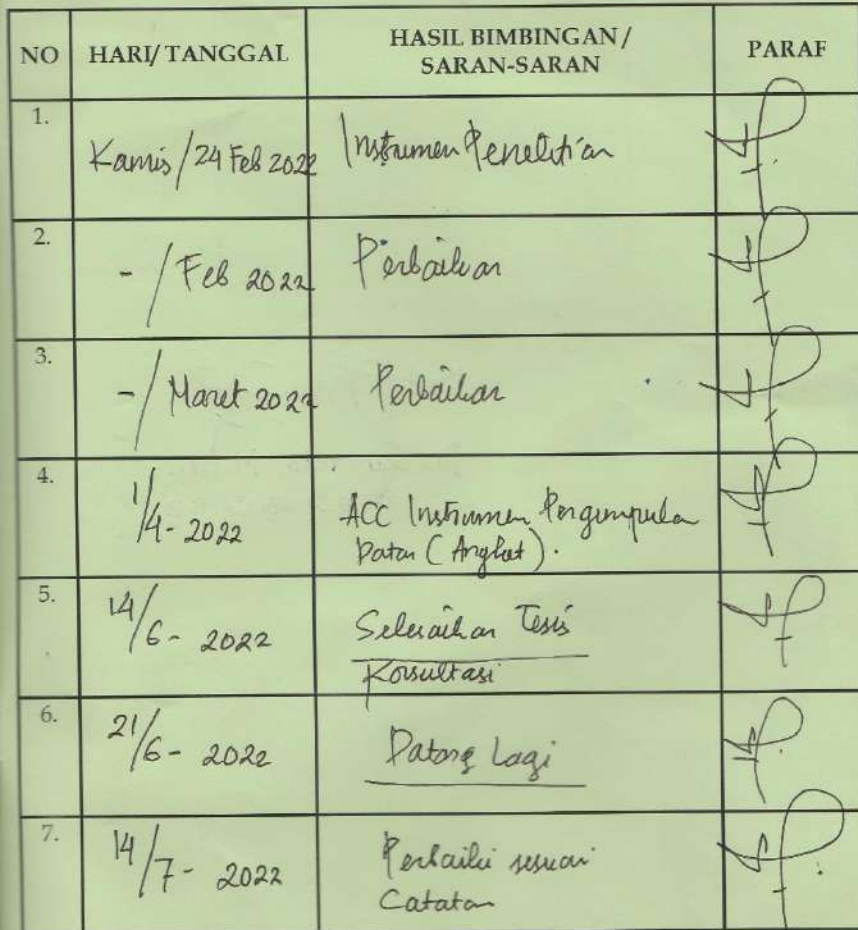 NO HARI/TANGGAL HASIL BIMBINGAN/ SARAN-SARAN PARAF
1. Kamis/24 Feb 2022 Instrumen Penelitian
2. -/Feb 2022 Perbaikan
3. -/Maret 2022 Perbaikan
4. 1/4-2022 ACC Instrumen Pengumpulan
Data (Angket).
5. 14/6-2022 Selesaikan Tesis
Konsultasi
6. 21/6-2022 Datang Lagi
7. 14/7-2022 Perbaiki sesuai
Catatan